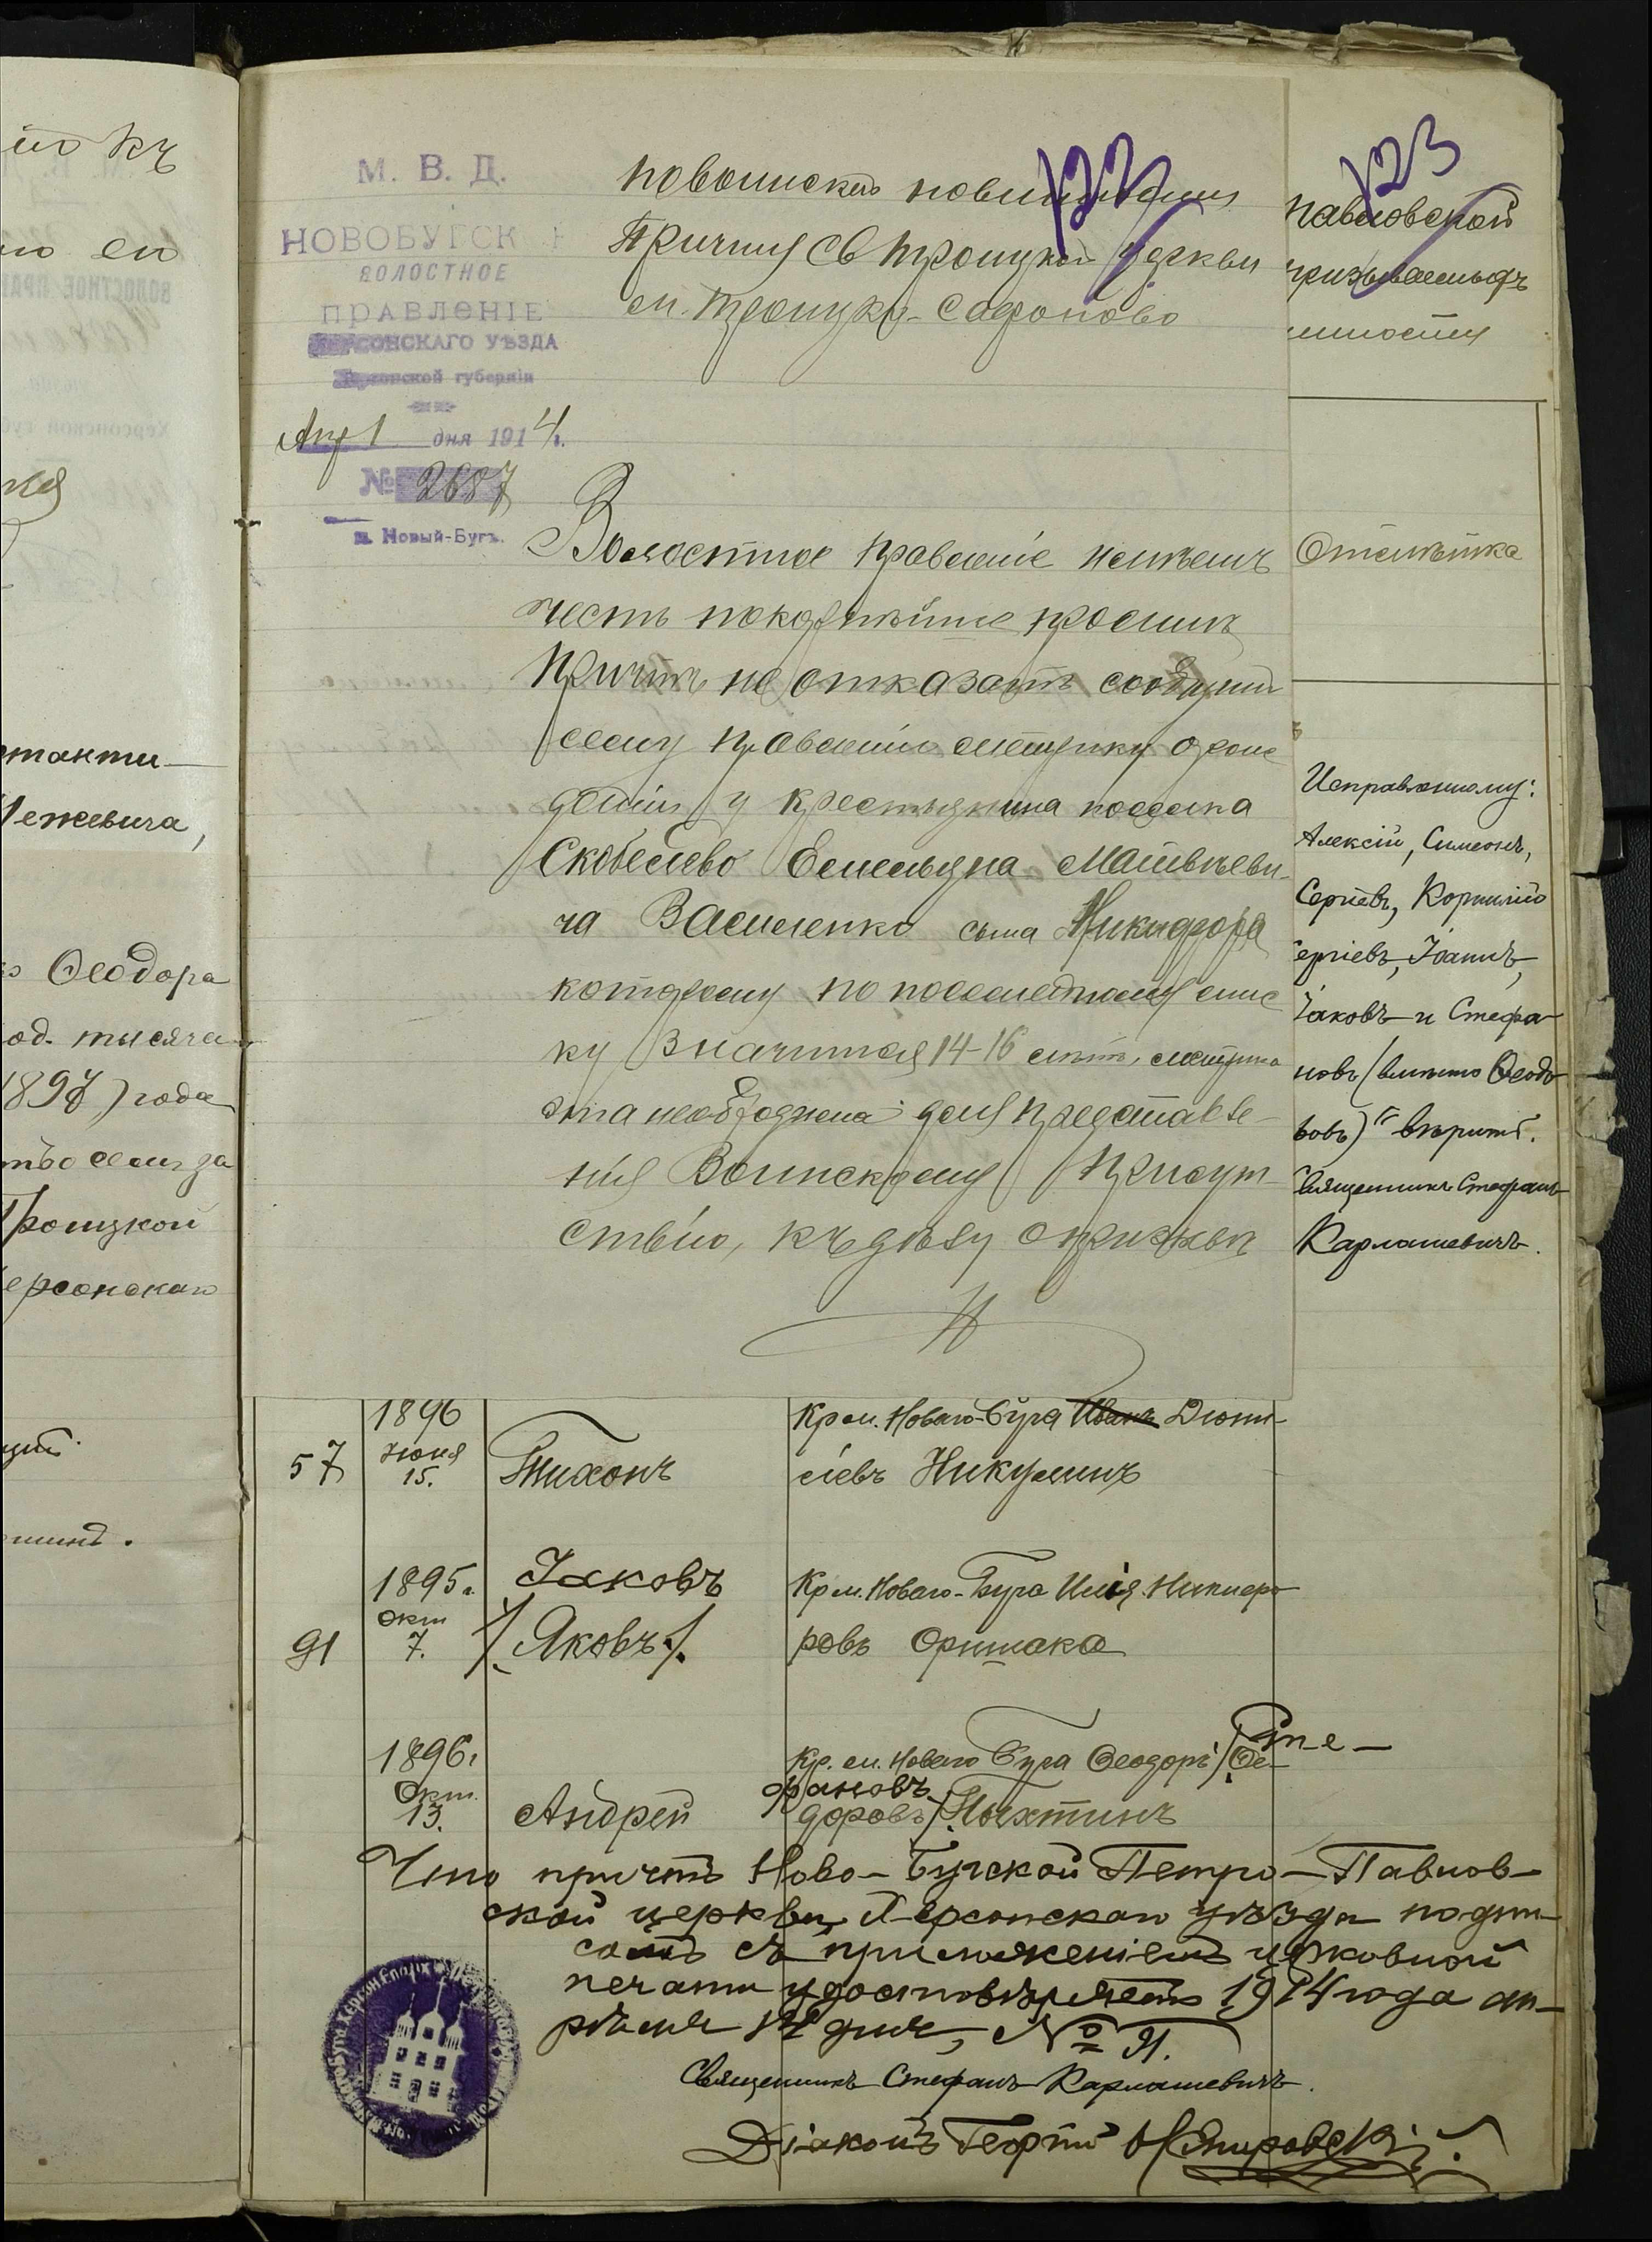 122
123
М. В. Д.
НОВОБУГСК
ВОЛОСТНОЕ
ПРАВЛЕНІЕ
ХЕРСОНСКАГО УѢЗДА
Херсонской губерніи
Апр 1 дня 1914 г.
№ 2687
п. Новый-Бугъ.
По воинской повинности
Причту Св Троицкой церкви
м. Троицко-Сафоново
Волостное Правленіе имѣетъ
честь покорнѣйше просить
Причтъ не отказать сообщить
сему Правленію метрику о рож
деніи у крестьянина поселка
Скобелево Емельяна Матвѣеви-
ча Василенко сына Никифора
которому по посемейному спис
ку значится 14-16 лѣтъ, метрика
эта необходима для представле-
нія Воинскому Присут-
ствію, къ дѣлу о призывѣ
Павловской
призываемыхъ
Отмѣтка
Исправленному:
Алексій, Симеонъ,
Сергіевъ, Корнилій
Сергіевъ, Іоаннъ,
Іаковъ и Стефа-
новъ (вмѣсто Ѳеодо-
ровъ) вѣрить.
Священникъ Стефанъ
Карлашевичъ.
іо къ
Межевича,
Ѳеодора
од. тысяча
1897) года
Троицкой
ерсонскаго
57 1896 Іюня 15. Тихонъ Кр м. Новаго-Буга Иванъ Діони-
сіевъ Никулинъ
91 1895 г. Окт 7. Іаковъ /Яковъ/. Кр м. Новаго-Буга Илія Никифо-
ровъ
1896 г. Окт. 13. Андрей Кр. м. Новаго Буга Ѳеодоръ /Ѳе- Сте-
фановъ
доровъ/
Что причтъ Ново-Бугской Петро-Павлов-
ской церкви, Херсонскаго уѣзда подпи-
сомъ съ приложеніемъ церковной
печати удостовѣряетъ 1914 года ап-
рѣля 12 дня, № 91.
Священникъ Стефанъ Карлашевичъ.
Діаконъ Георгій